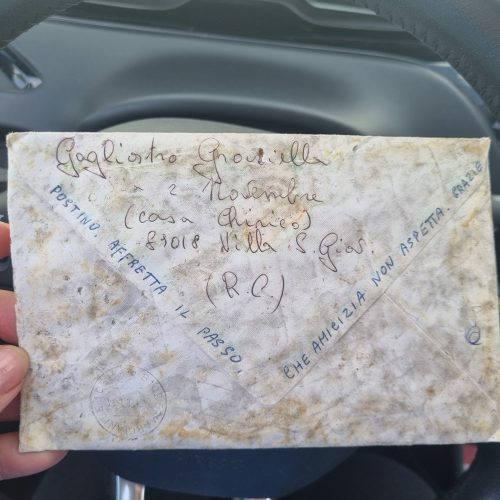 Gagliostro Graziella
x 2 Novembre
(casa Chirico)
89018 Villa S. Giov.
(R.C.)
POSTINO AFFRETTA IL PASSO,
CHE AMICIZIA NON ASPETTA. GRAZIE